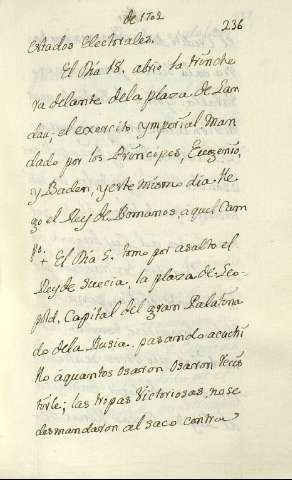 de 1702
236
estados electorales.
El Dia 18. abrio la trinche
ra delante de la plaza de Lan
dau; el exercito ymperial man
dado por los Principes, Eugenio,
y Baden, y este mismo dia lle
go el Rey de Romanos, aquel Cam
po.
+ El Dia 5. tomo por asalto el
Rey de suecia, la plaza de Leo-
pold, Capital del gran Palatina
do de la Rusia. pasando acuchi
llo aquantos osaron osaron resis
tirle; las tropas victoriosas, nose
desmandaron al saco contra